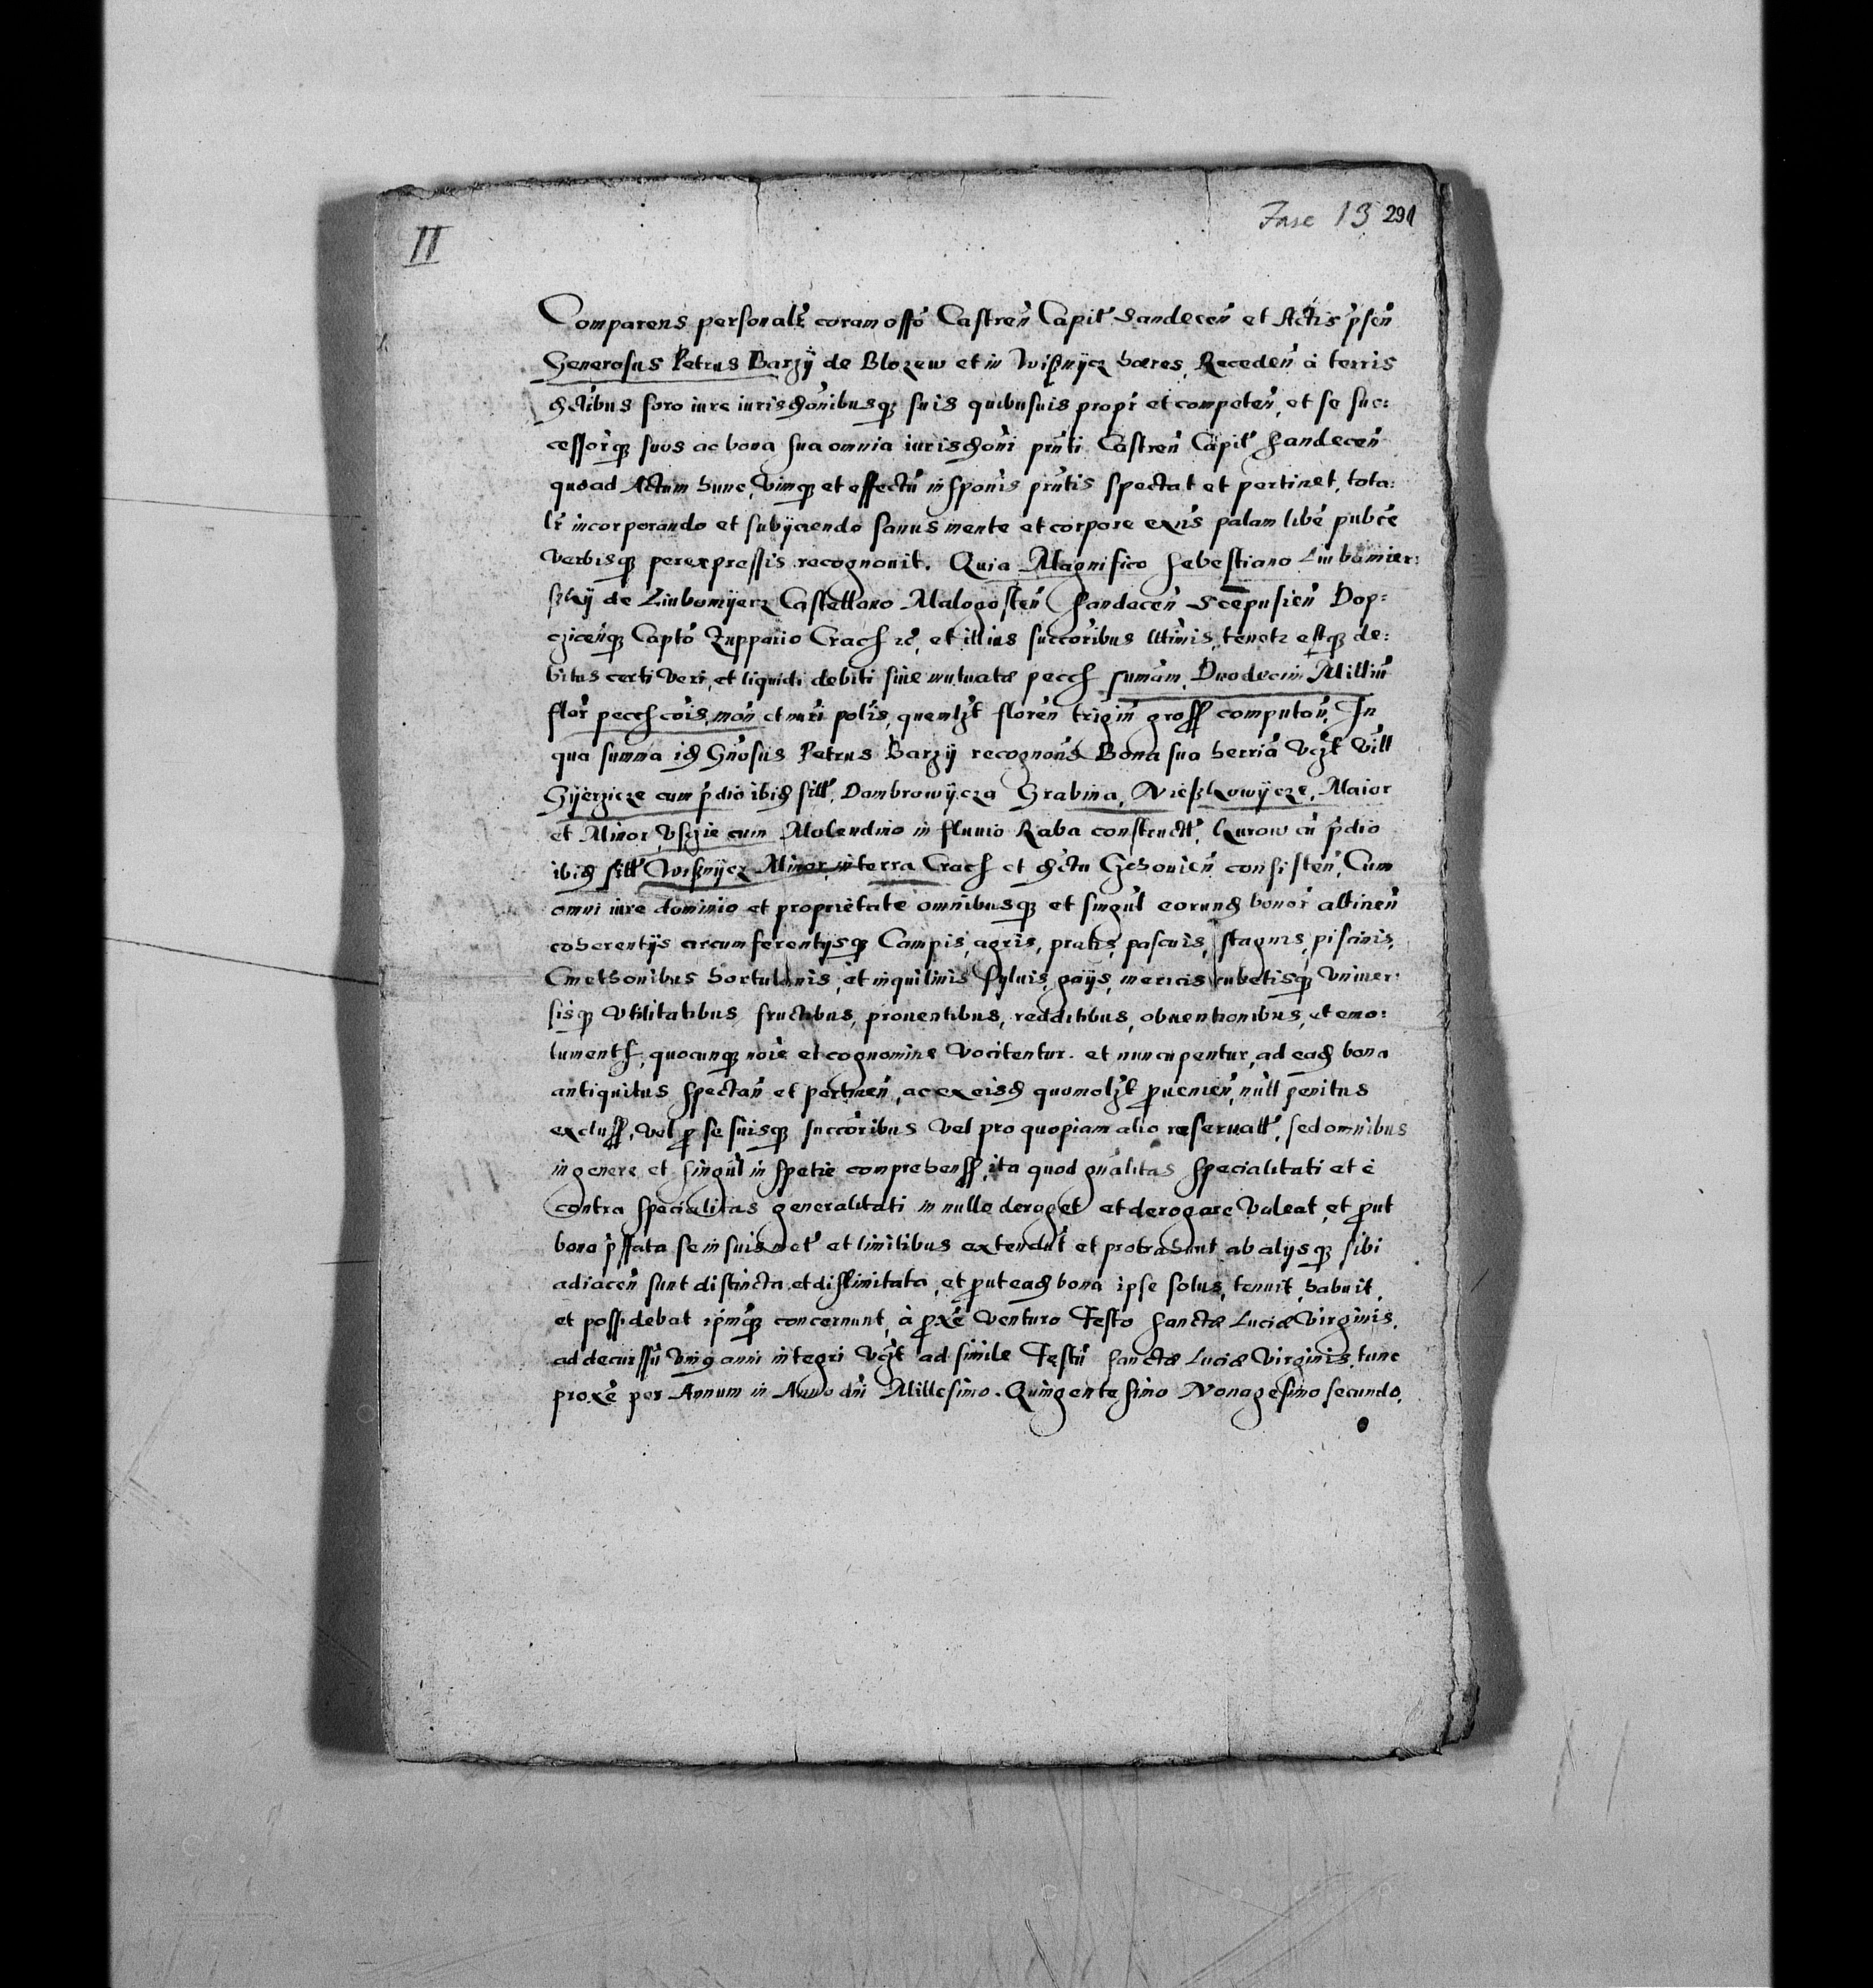 II
Fasc 13 291
Comparens personalr coram offo Castren Capit Sandecen et Actis psen
Generosus Petrus Barzÿ de Blozew et in Wißnÿcz hæres, Receden à terris
dctibus foro iure iurisdonibusq suis quibusuis propr et competen, et se suc:
cessorq suos ac bona sua omnia iurisdoni pnti Castren Capit Sandecen
quoad Actum hunc, vimq et effectu insponis pntis spectat et pertinet, tota:
lr incorporando et subÿciendo sanus mente et corpore exns palam libe publce
verbisq perexpressis recognouit. Quia Magnifico Sebestiano Liubomier:
szkÿ de Liubomÿerz Castellano Malogosten Sandecen Scepusien Dop:
czicenq Capto Zuppario Crac et illius succoribus lttimis, tenetr estq de:
bitus certi veri, et liquidi debiti siue mutuatæ pecc sumam, Duodecim Milliu
flor pecc cois, mon et nuri polis, quemlzt floren trigin gross computan, In
qua summa id Gnosus Petrus Barzÿ recognons Bona sua herria vczt vill
Gÿerzicze cum pdio ibid sitt, Dambrowÿcza Grabina, Nießkowÿcze, Maior
et Minor, Vsczie cum Molendino in fluuio Raba constructt, Kurow cu pdio
ibid sitt Wißnÿcz Minor, in terra Crac et dctu Czchouien consisten, Cum
omni iure dominio et proprietate omnibusq et singul eorund bonor attinen
coherentÿs circumferentÿsq Campis, agris, pratis, pascuis, stagnis, piscinis,
Cmethonibus hortulanis, et inquilinis syluis, gaÿs, mericis rubetisq vniuer:
sisq vtilitatibus, fructibus, prouentibus, redditibus, obuentionibus, et emo:
lument, quocunq noie et cognomine vocitentur. et nuncupentur, ad ead bona
antiquitus spectan et pertinen, ac ex eisd quomolzt puenien, null penitus
excluss, vel p se suisq succoribus vel pro quopiam alio reseruatt, sed omnibus
in genere et singul in spetie comprehenss, ita quod gnalitas specialitati et è
contra specialitas generalitati in nullo deroget et derogare valeat, et put
bona pffata se in suis met et limitibus extendut et protrahunt ab alÿsq sibi
adiacen sunt distincta et dislimitata, et put ead bona ipse solus, tenuit, habuit,
et possidebat ipmq concernunt, à pxe venturo Festo Sanctæ Luciæ Virginis,
ad decurssu vnig anni integri vczt ad simile Festu Sanctæ Luciæ Virginis, tunc
proxe per Annum in Anno dni Millesimo. Quingentesimo Nonagesimo secundo,